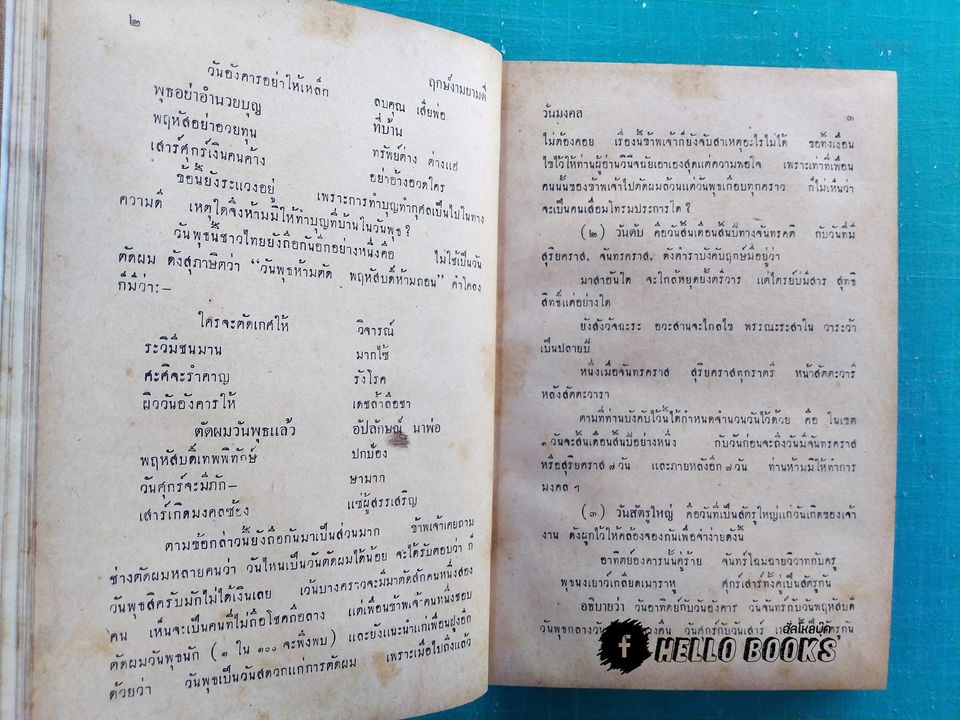 ๒
ฤกษ์งามยามดี
วันอังคารอย่าให้เหล็ก ลบคุณ เสียพ่อ
พุธอย่าอำนวยบุญ ที่บ้าน
พฤหัสอย่าอวยทุน ทรัพย์ต่าง ต่างแฮ
เสาร์ศุกร์เงินคนค้าง อย่าอ้างอวดใคร
ข้อนี้ยังระแวงอยู่ เพราะการทำบุญทำกุศลเป็นไปในทาง
ความดี เหตุใดจึงห้ามมิให้ทำบุญที่บ้านในวันพุธ ?
วันพุธนี้ชาวไทยยังถือกันอีกอย่างหนึ่งคือ ไม่ใช่เป็นวัน
ตัดผม ดังสุภาษิตว่า “วันพุธห้ามตัด พฤหัสบดีห้ามถอน” คำโคลง
ก็มีว่า:–
ใครจะตัดเกศให้ วิจารณ์
ระวิมีชนมาน มากไซ้
ศะศิจะรำคาญ รังโรค
ผิววันอังคารให้ เดชล้ำลือชา
ตัดผมวันพุธแล้ว อัปลักษณ์ นาพ่อ
พฤหัสบดีเทพพิทักษ์ ปกป้อง
วันศุกร์จะมีภัก– ษามาก
เสาร์เกิดมงคลซ้อง แซ่ผู้สรรเสริญ
ตามข้อกล่าวนี้ยังถือกันมาเป็นส่วนมาก ข้าพเจ้าเคยถาม
ช่างตัดผมหลายคนว่า วันไหนเป็นวันตัดผมได้น้อย จะได้รับตอบว่า ก็
วันพุธสิครับมักไม่ได้เงินเลย เว้นบางคราวจะมีมาตัดสักคนหนึ่งสอง
คน เห็นจะเป็นคนที่ไม่ถือโชคถือลาง แต่เพื่อนข้าพเจ้าคนหนึ่งชอบ
ตัดผมวันพุธนัก (๑ ใน ๑๐๐ จะพึงพบ) และยังแนะนำแก่เพื่อนฝูงอีก
ด้วยว่า วันพุธเป็นวันสดวกแก่การตัดผม เพราะเมื่อไปถึงแล้ว
วันมงคล ๓
ไม่ต้องคอย เรื่องนี้ข้าพเจ้าก็ยังจับสาเหตุอะไรไม่ได้ ขอทิ้งเงื่อน
ไขไว้ให้ท่านผู้อ่านวินิจฉัยเอาเองสุดแต่ความพอใจ เพราะเท่าที่เพื่อน
คนนั้นของข้าพเจ้าไปตัดผมล้วนแต่วันพุธเกือบทุกคราว ก็ไม่เห็นว่า
จะเป็นคนเสื่อมโทรมประการใด ?
(๒) วันดับ คือวันสิ้นเดือนสิ้นปีทางจันทรคติ กับวันที่มี
สุริยคราส, จันทรคราส, ดังตำราบังคับฤกษ์มีอยู่ว่า
มาสาอันใด จะใกล้หยุดยั้งตรีวาร แต่ไตรย์บ่มีสาร สุทธิ
สิทธิ์แต่อย่างใด
ยังสังวัจฉะระ อวะสานจะไกลไข พรรณะระสำใน วาระวัา
เป็นปลายปี
หนึ่งเมื่อจันทรคราส สุริยคราสทุกราตรี หน้าสัตตะวารี
หลังสัตตะวารา
ตามที่ท่านบังคับไว้นี้ได้กำหนดจำนวนวันไว้ด้วย คือ ในเขต
๓ วันจะสิ้นเดือนสิ้นปีอย่างหนึ่ง กับวันก่อนจะถึงวันมีจันทรคราส
หรือสุริยคราส ๗ วัน และภายหลังอีก ๗ วัน ท่านห้ามมิให้ทำการ
มงคล ฯ
(๓) วันสัตรูใหญ่ คือวันที่เป็นสัตรูใหญ่แก่วันเกิดของเจ้า
งาน ดังผูกไว้ให้คล้องจองกันเพื่อจำง่ายดังนี้
อาทิตย์อังคารนั้นคู่ร้าย จันทร์โฉมฉายวิวาทกับครู
พุธนงเยาว์เกลียดเมาราหู ศุกร์เสาร์ทั้งคู่เป็นสัตรูกัน
อธิบายว่า วันอาทิตย์กับวันอังคาร วันจันทร์กับวันพฤหัสบดี
วันพุธกลางวัน คืน วันศุกร์กับวันเสาร์ เป็นสัตรูกัน
ฮัลโหลบุ๊ค
f HELLO BOOKS